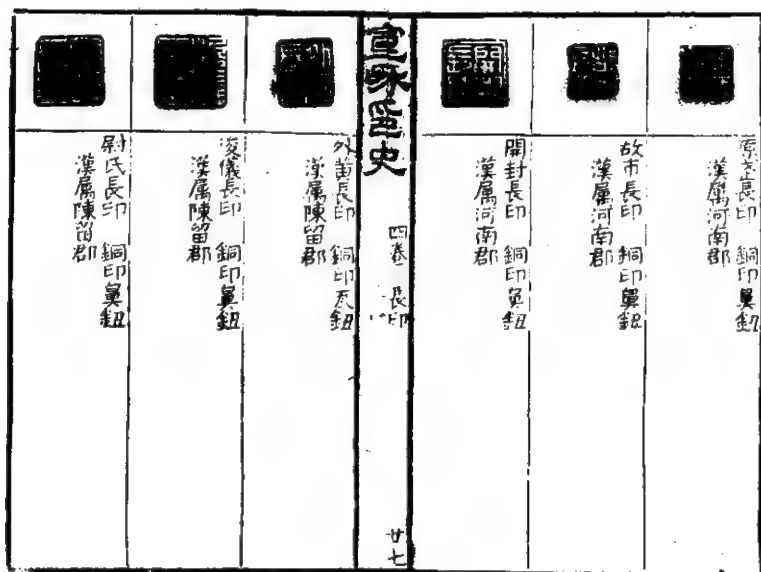 原武長印 銅印鼻鈕
漢属河南郡
故市長印 銅印鼻鈕
漢属河南郡
開封長印 銅印鼻鈕
漢属河南郡
宣和印史
四卷 長印
廿七
外黃長印 銅印瓦鈕
漢属陳留郡
浚儀長印 銅印鼻鈕
漢属陳留郡
尉氏長印 銅印鼻鈕
漢属陳留郡